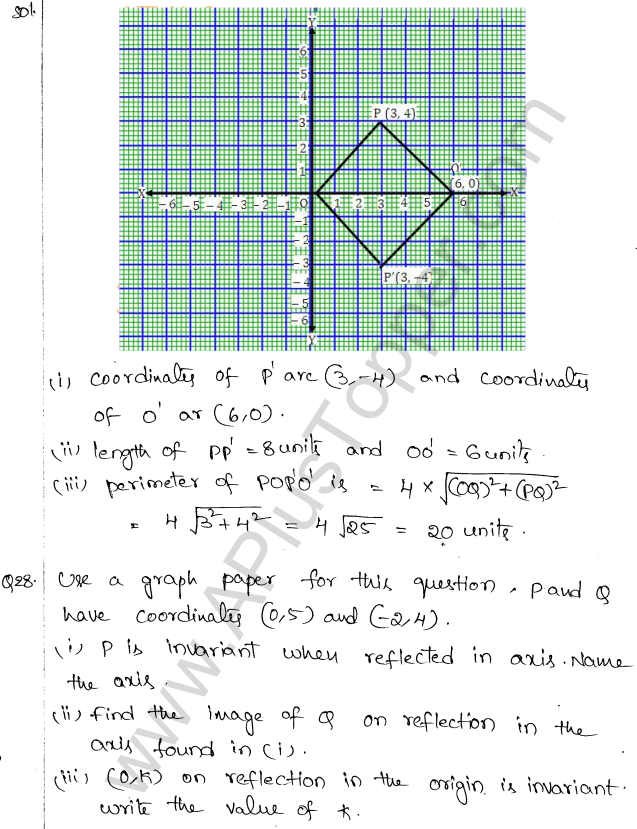 Sol.
Y
6
5
4
3
2
1
P (3, 4)
O'
(6, 0)
X -6 -5 -4 -3 -2 -1 O 1 2 3 4 5 6 X
-1
-2
-3
-4
-5
-6
P'(3, -4)
Y
(i) coordinates of P' are (3, -4) and coordinates
of O' ar (6,0).
(ii) length of PP' = 8 units and OO' = 6 units.
(iii) perimeter of POP'O' is = 4 × √(OQ)²+(PQ)²
= 4 √3²+4² = 4 √25 = 20 units.
Q28. Use a graph paper for this question. P and Q
have coordinates (0,5) and (-2,4).
(i) P is invariant when reflected in axis. Name
the axis.
(ii) find the image of Q on reflection in the
axis found in (i).
(iii) (0,k) on reflection in the origin is invariant.
write the value of k.
www.APlusTopper.com